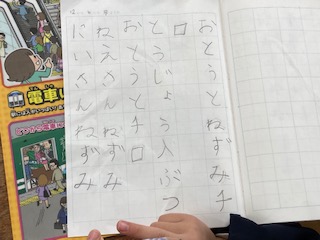 おとうとねずみチ
ロ
とうじょう人ぶつ
おとうとチロ
ねえさんねずみ
にいさんねずみ
電車